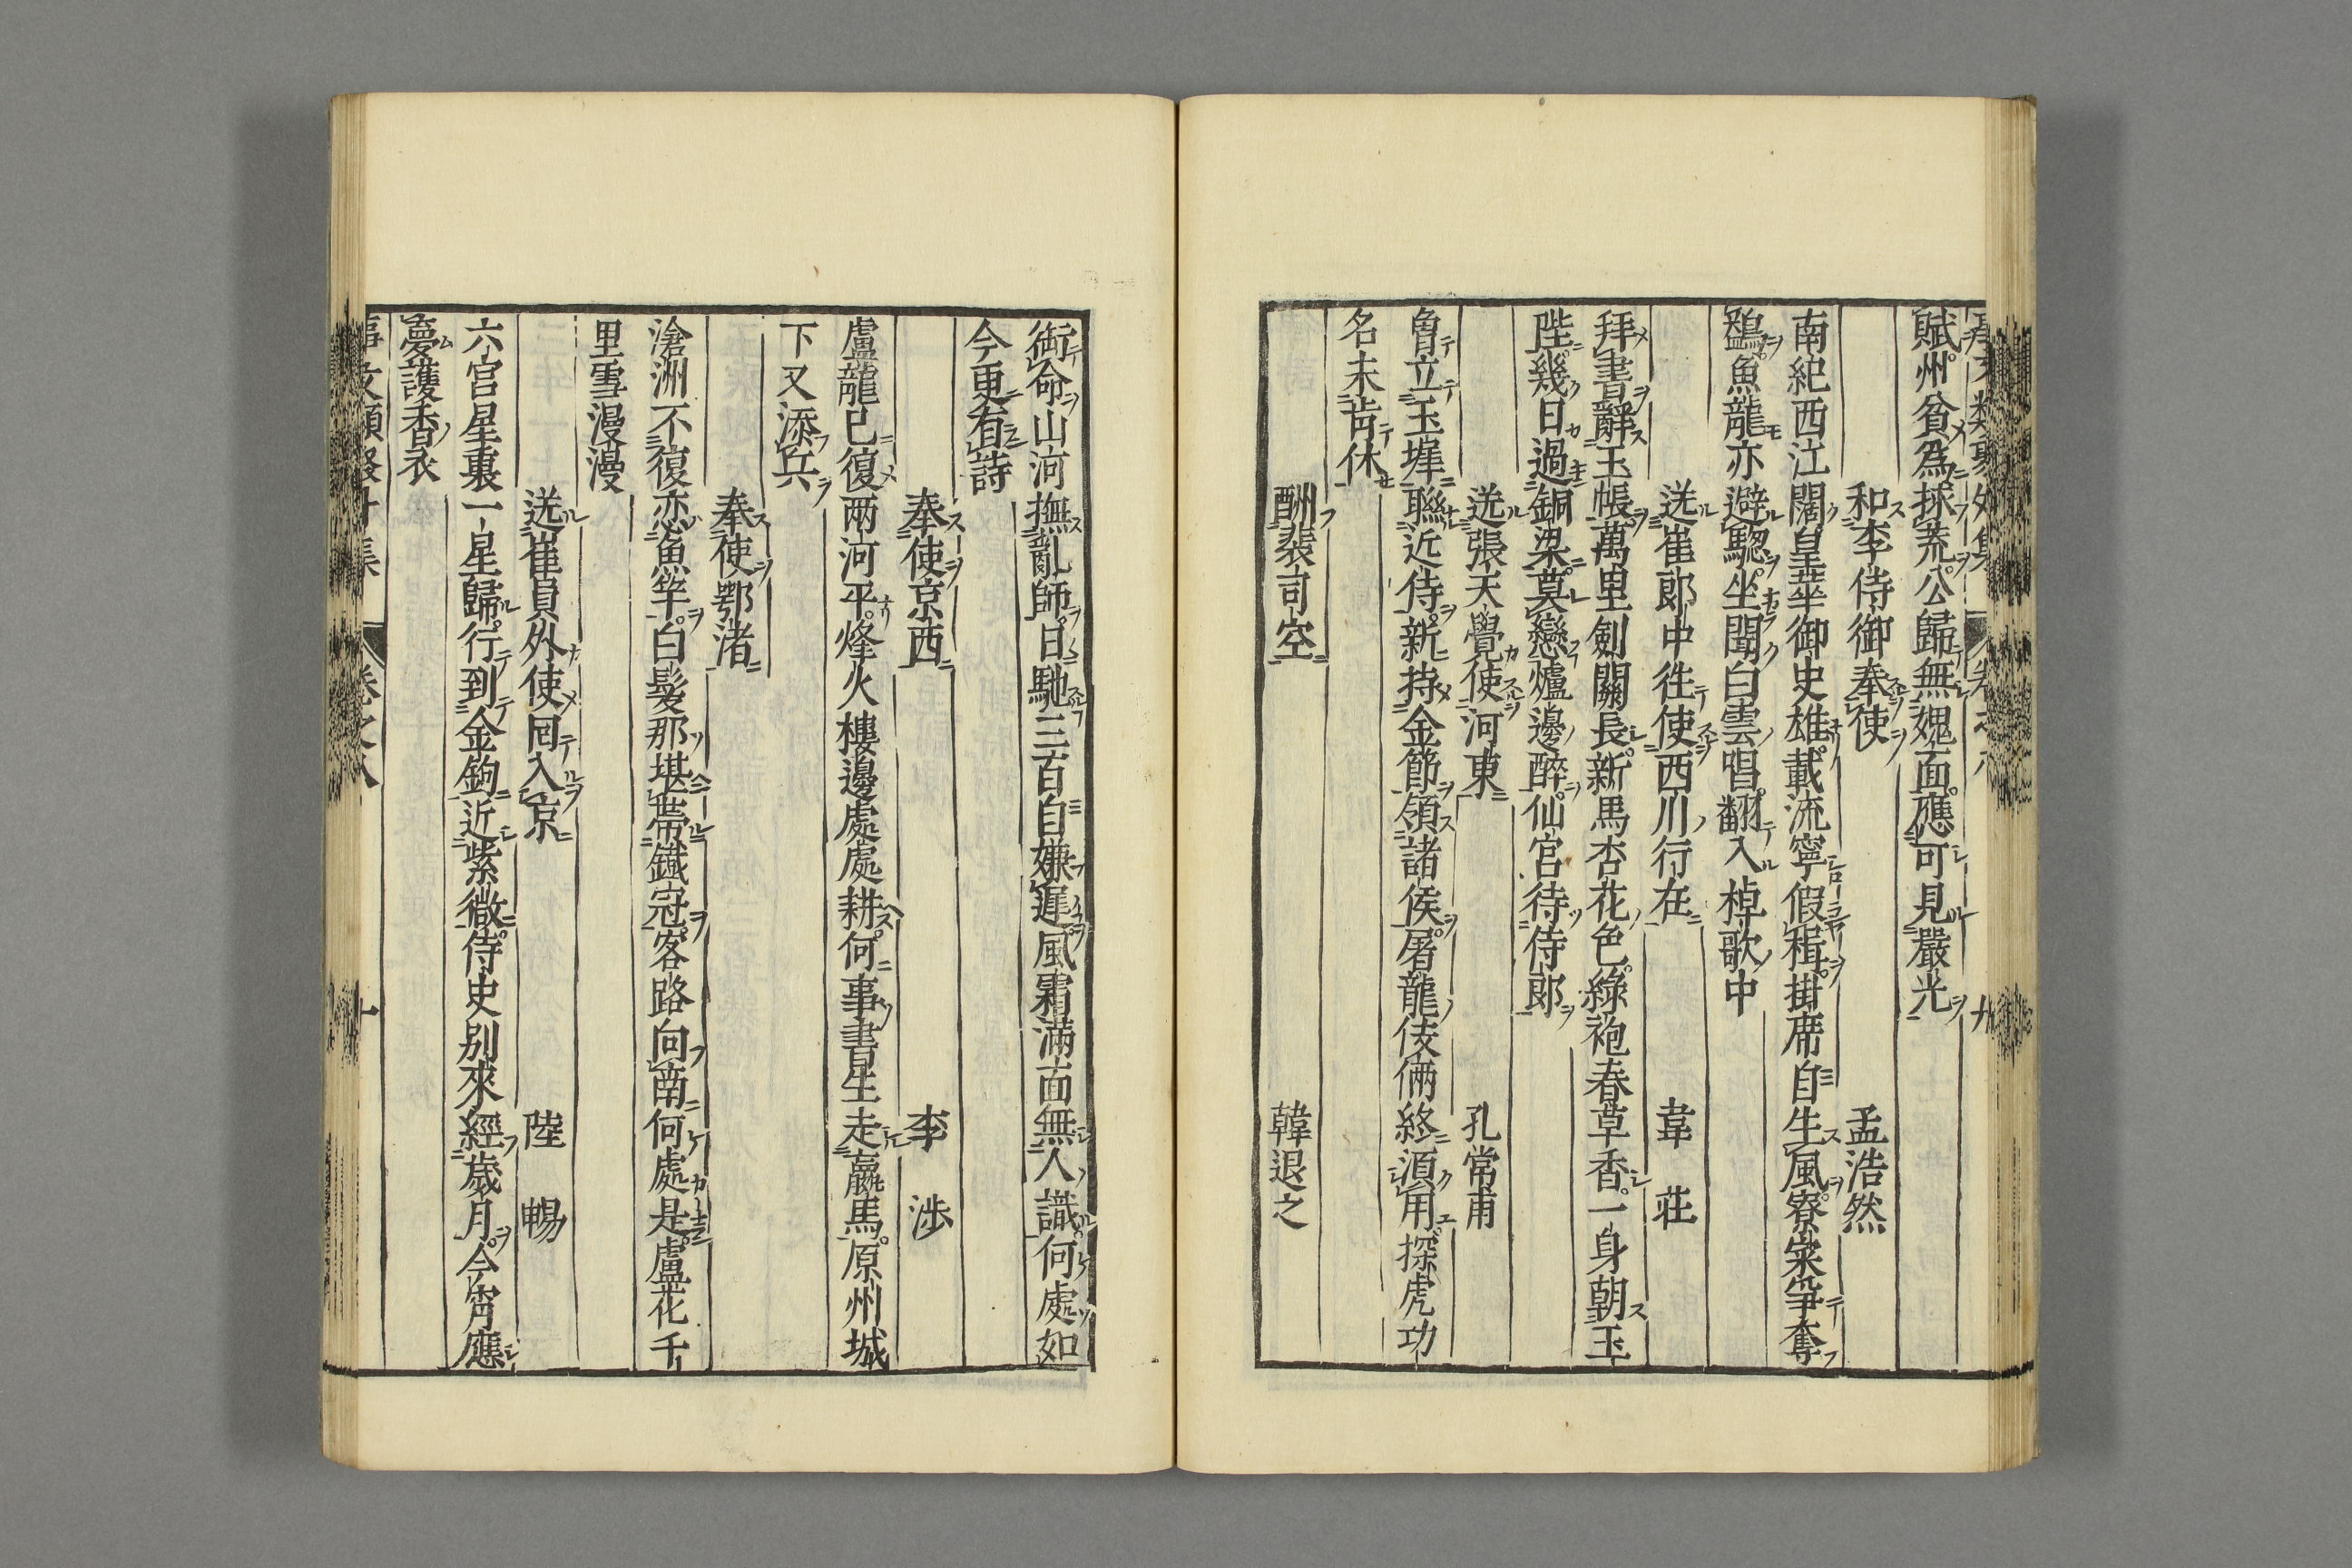 賦州貧為捄荒公歸無媿面應可見嚴光
和李侍御奉使 孟浩然
南紀西江闊皇華御史雄截流寧假楫掛席自生風寮寀爭奪
鷁魚龍亦避驄坐聞白雲唱翻入棹歌中
送崔郎中徃使西川行在 韋 荘
拜書辭玉帳萬里劍關長新馬杏花色綠袍春草香一身朝玉
陛幾日過銅梁莫戀爐邊醉仙官待侍郎
送張天覺使河東 孔常甫
曾立玉墀聯近侍新持金節領諸侯屠龍伎倆終須用探虎功
名未肯休
酬裴司空 韓退之
銜命山河撫亂師日馳三百自嫌遲風霜滿面無人識何處如
今更有詩
奉使京西 李 渉
盧龍已復兩河平烽火樓邊處處耕何事書生走羸馬原州城
下又添兵
奉使鄂渚
滄洲不復恋魚竿白髮那堪帶鐵冠客路向南何處是盧花千
里雪漫漫
送崔員外使回入京 陸 暢
六宮星裏一星歸行到金鉤近紫微侍史別來經歲月今宵應
夢護香衣
卷之八
十